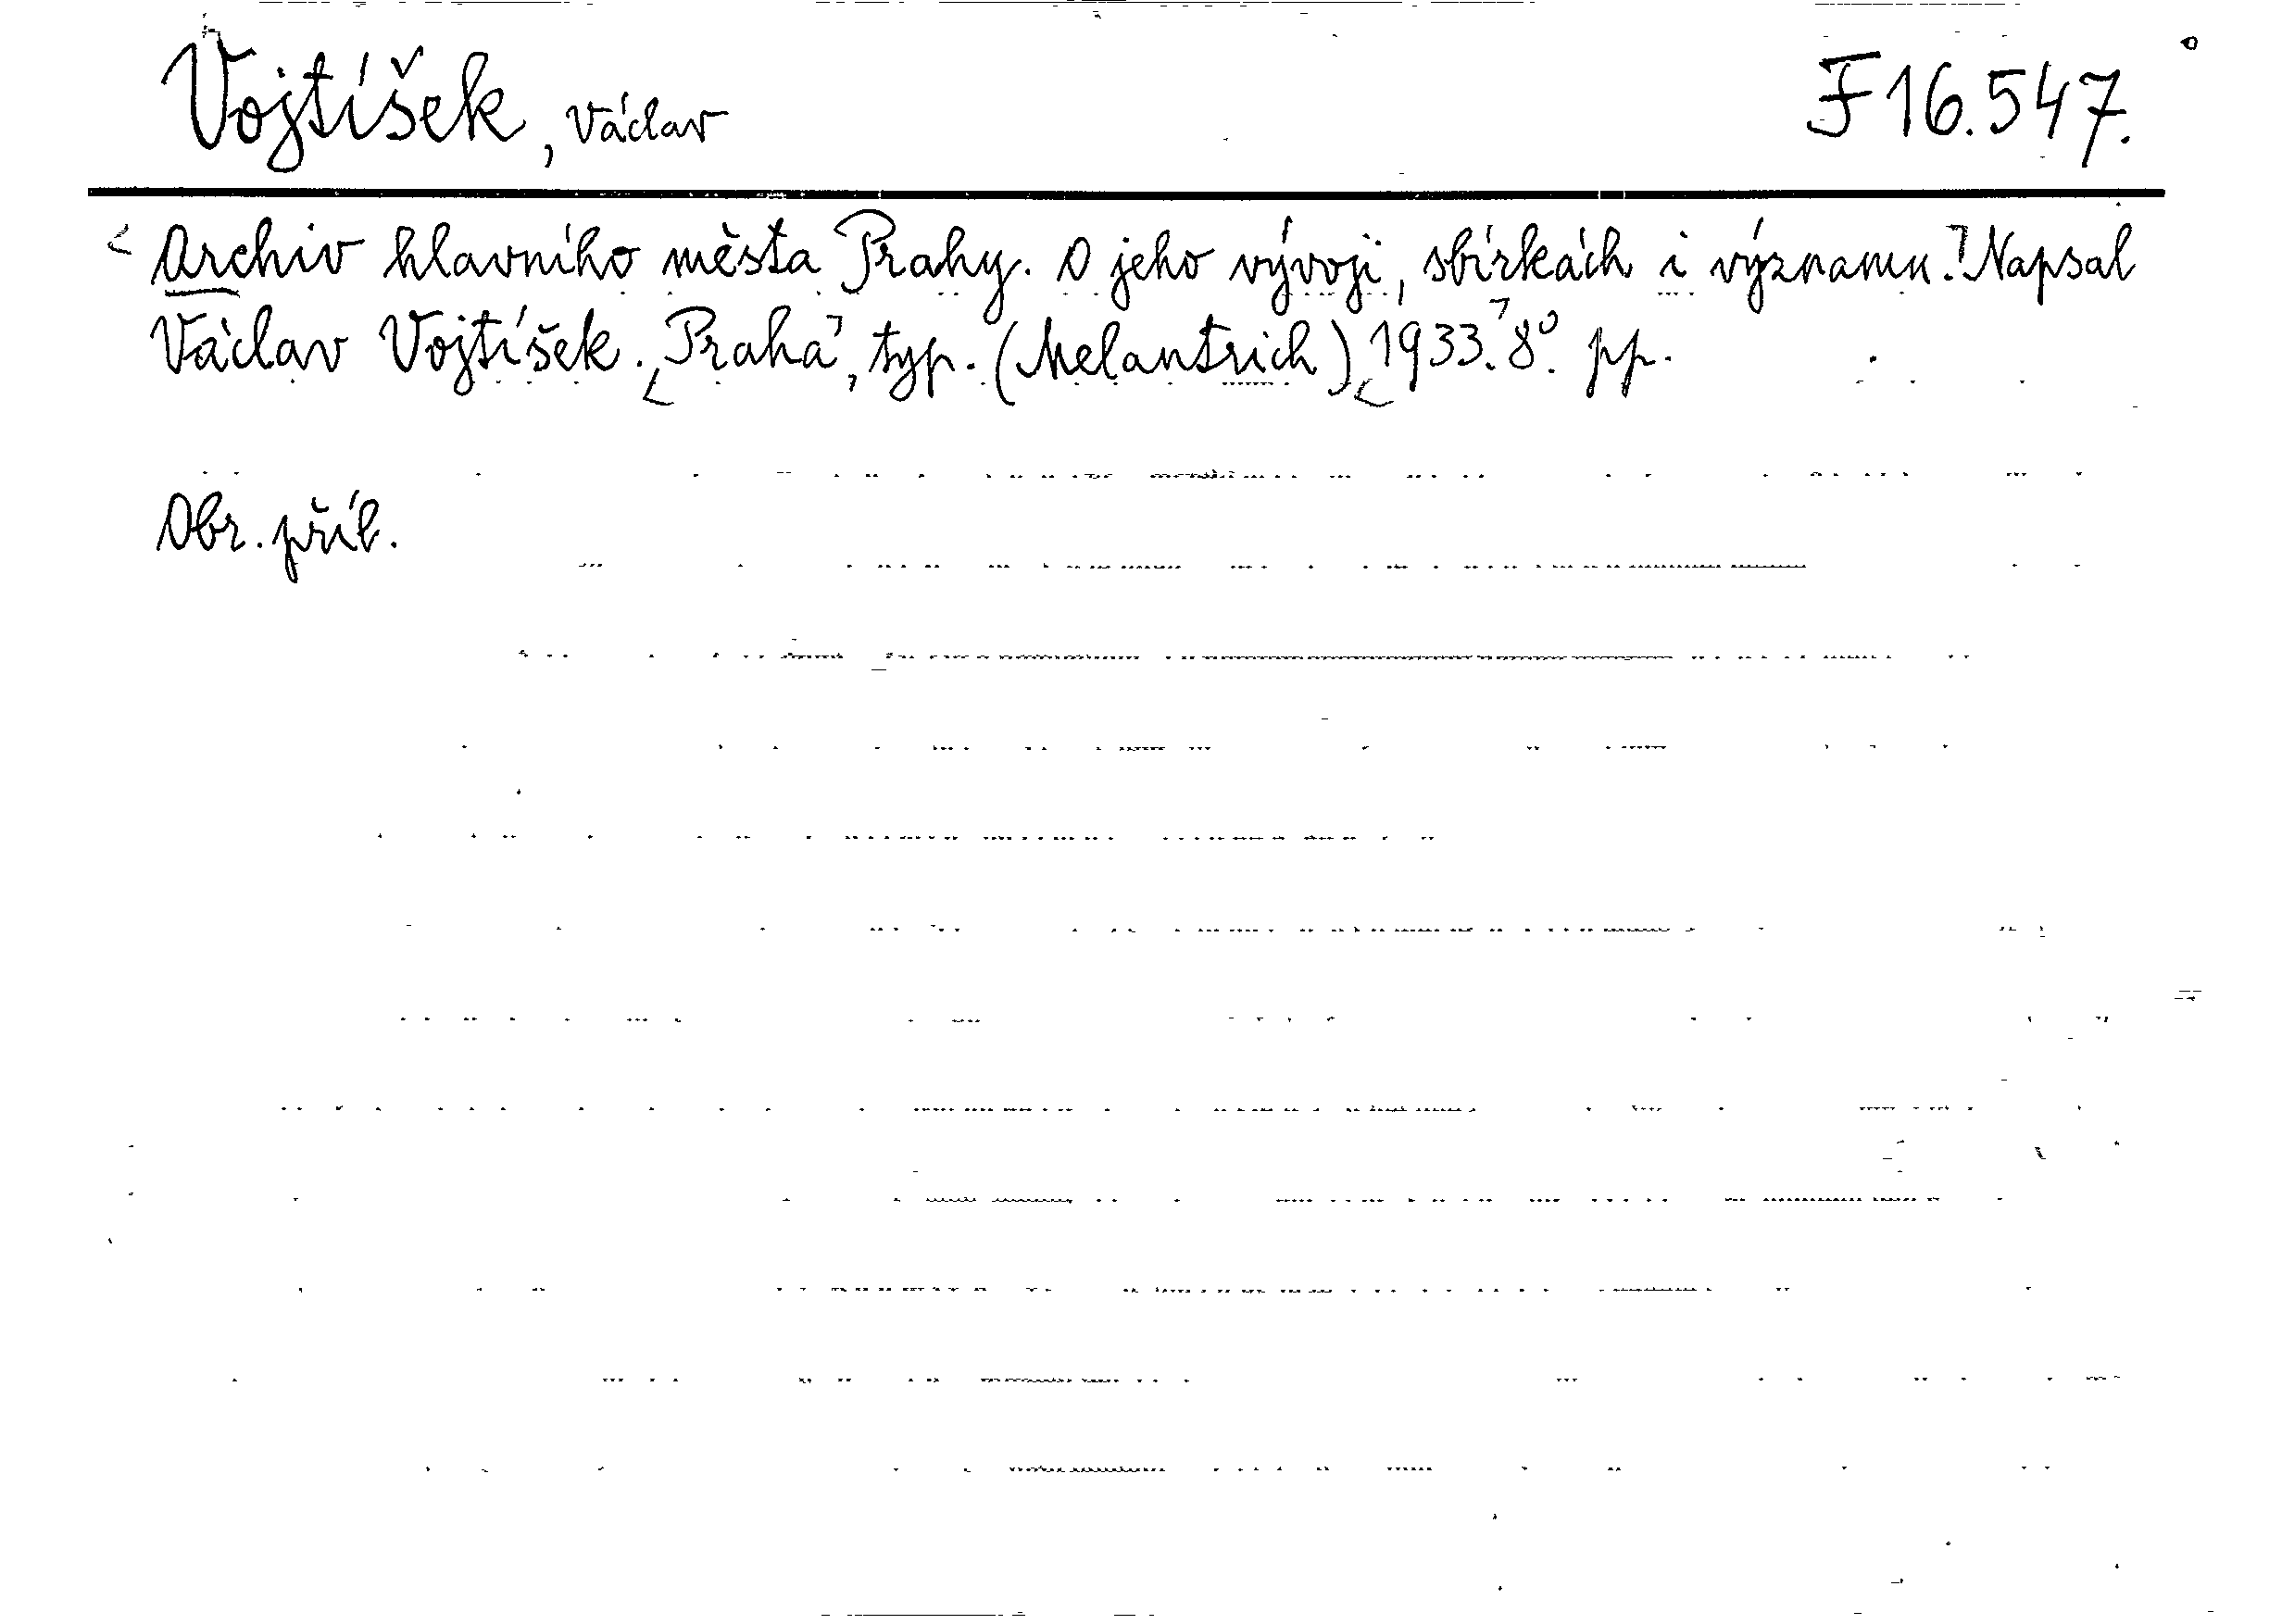 Vojtíšek, Václav F 16.547.
Archiv hlavního města Prahy. O jeho vývoji, sbírkách i významu. Napsal
Václav Vojtíšek. Praha, typ. (Melantrich) 1933. 8°. pp.
Obr. příl.